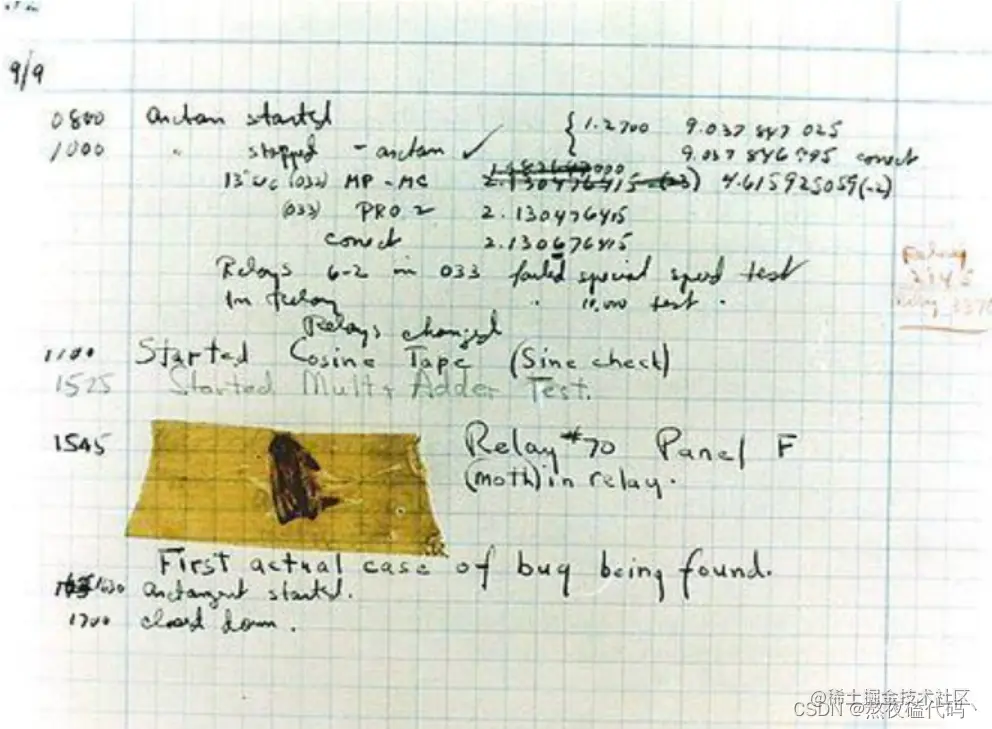 9/9
0800 arctan started { 1.2700 9.037 847 025
1000 " stopped - arctan ✓ 9.037 846 995 correct
13"uc (032) MP - MC 2.130476415 (-3) 4.615925059(-2)
(033) PRO 2 2.130476415
correct 2.130676415
Relays 6-2 in 033 failed special speed test
In relay " 10,000 test .
Relays changed
Relay
2145
Relay 3370
1100 Started Cosine Tape (Sine check)
1525 Started Mult + Adder Test.
1545 Relay #70 Panel F
(moth) in relay.
First actual case of bug being found.
1630 arctangent started.
1700 closed down.
@稀土掘金技术社区
CSDN @熬夜磕代码丶